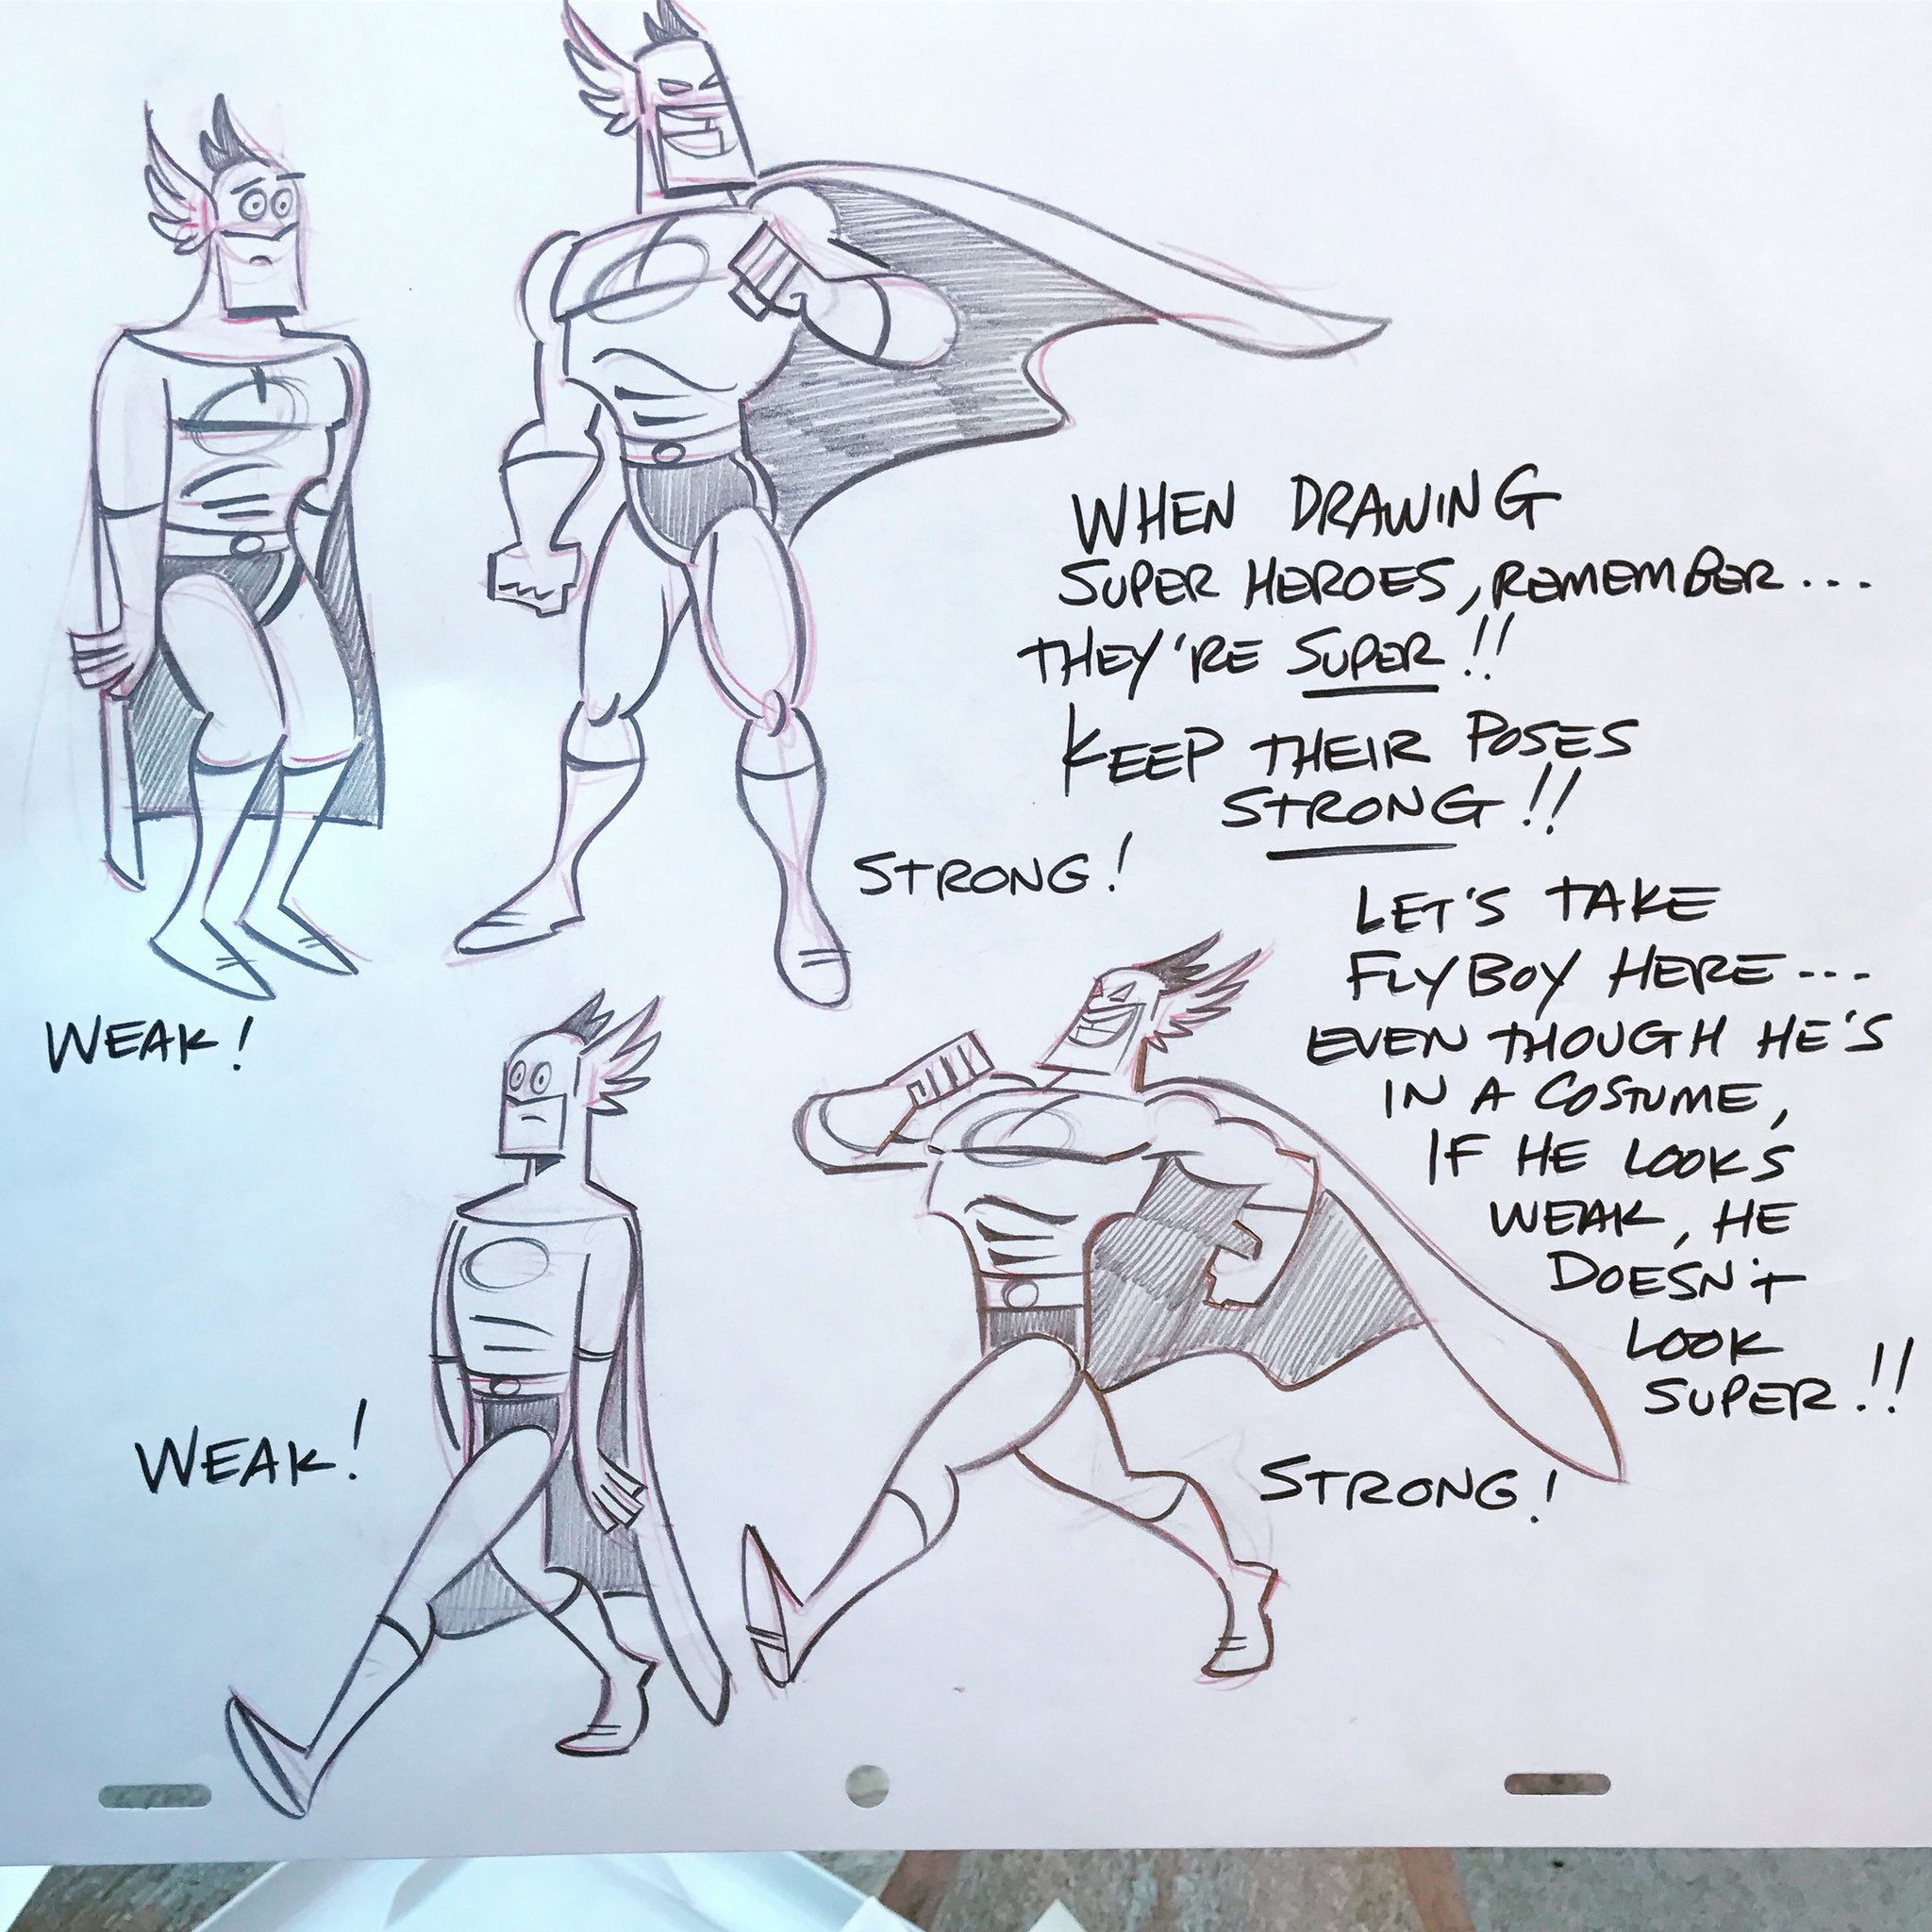 WHEN DRAWING
SUPER HEROES, REMEMBER...
THEY'RE SUPER!!
KEEP THEIR POSES
STRONG!!
STRONG!
LET'S TAKE
FLYBOY HERE...
EVEN THOUGH HE'S
IN A COSTUME,
IF HE LOOKS
WEAK, HE
DOESN'T
LOOK
SUPER!!
WEAK!
WEAK!
STRONG!